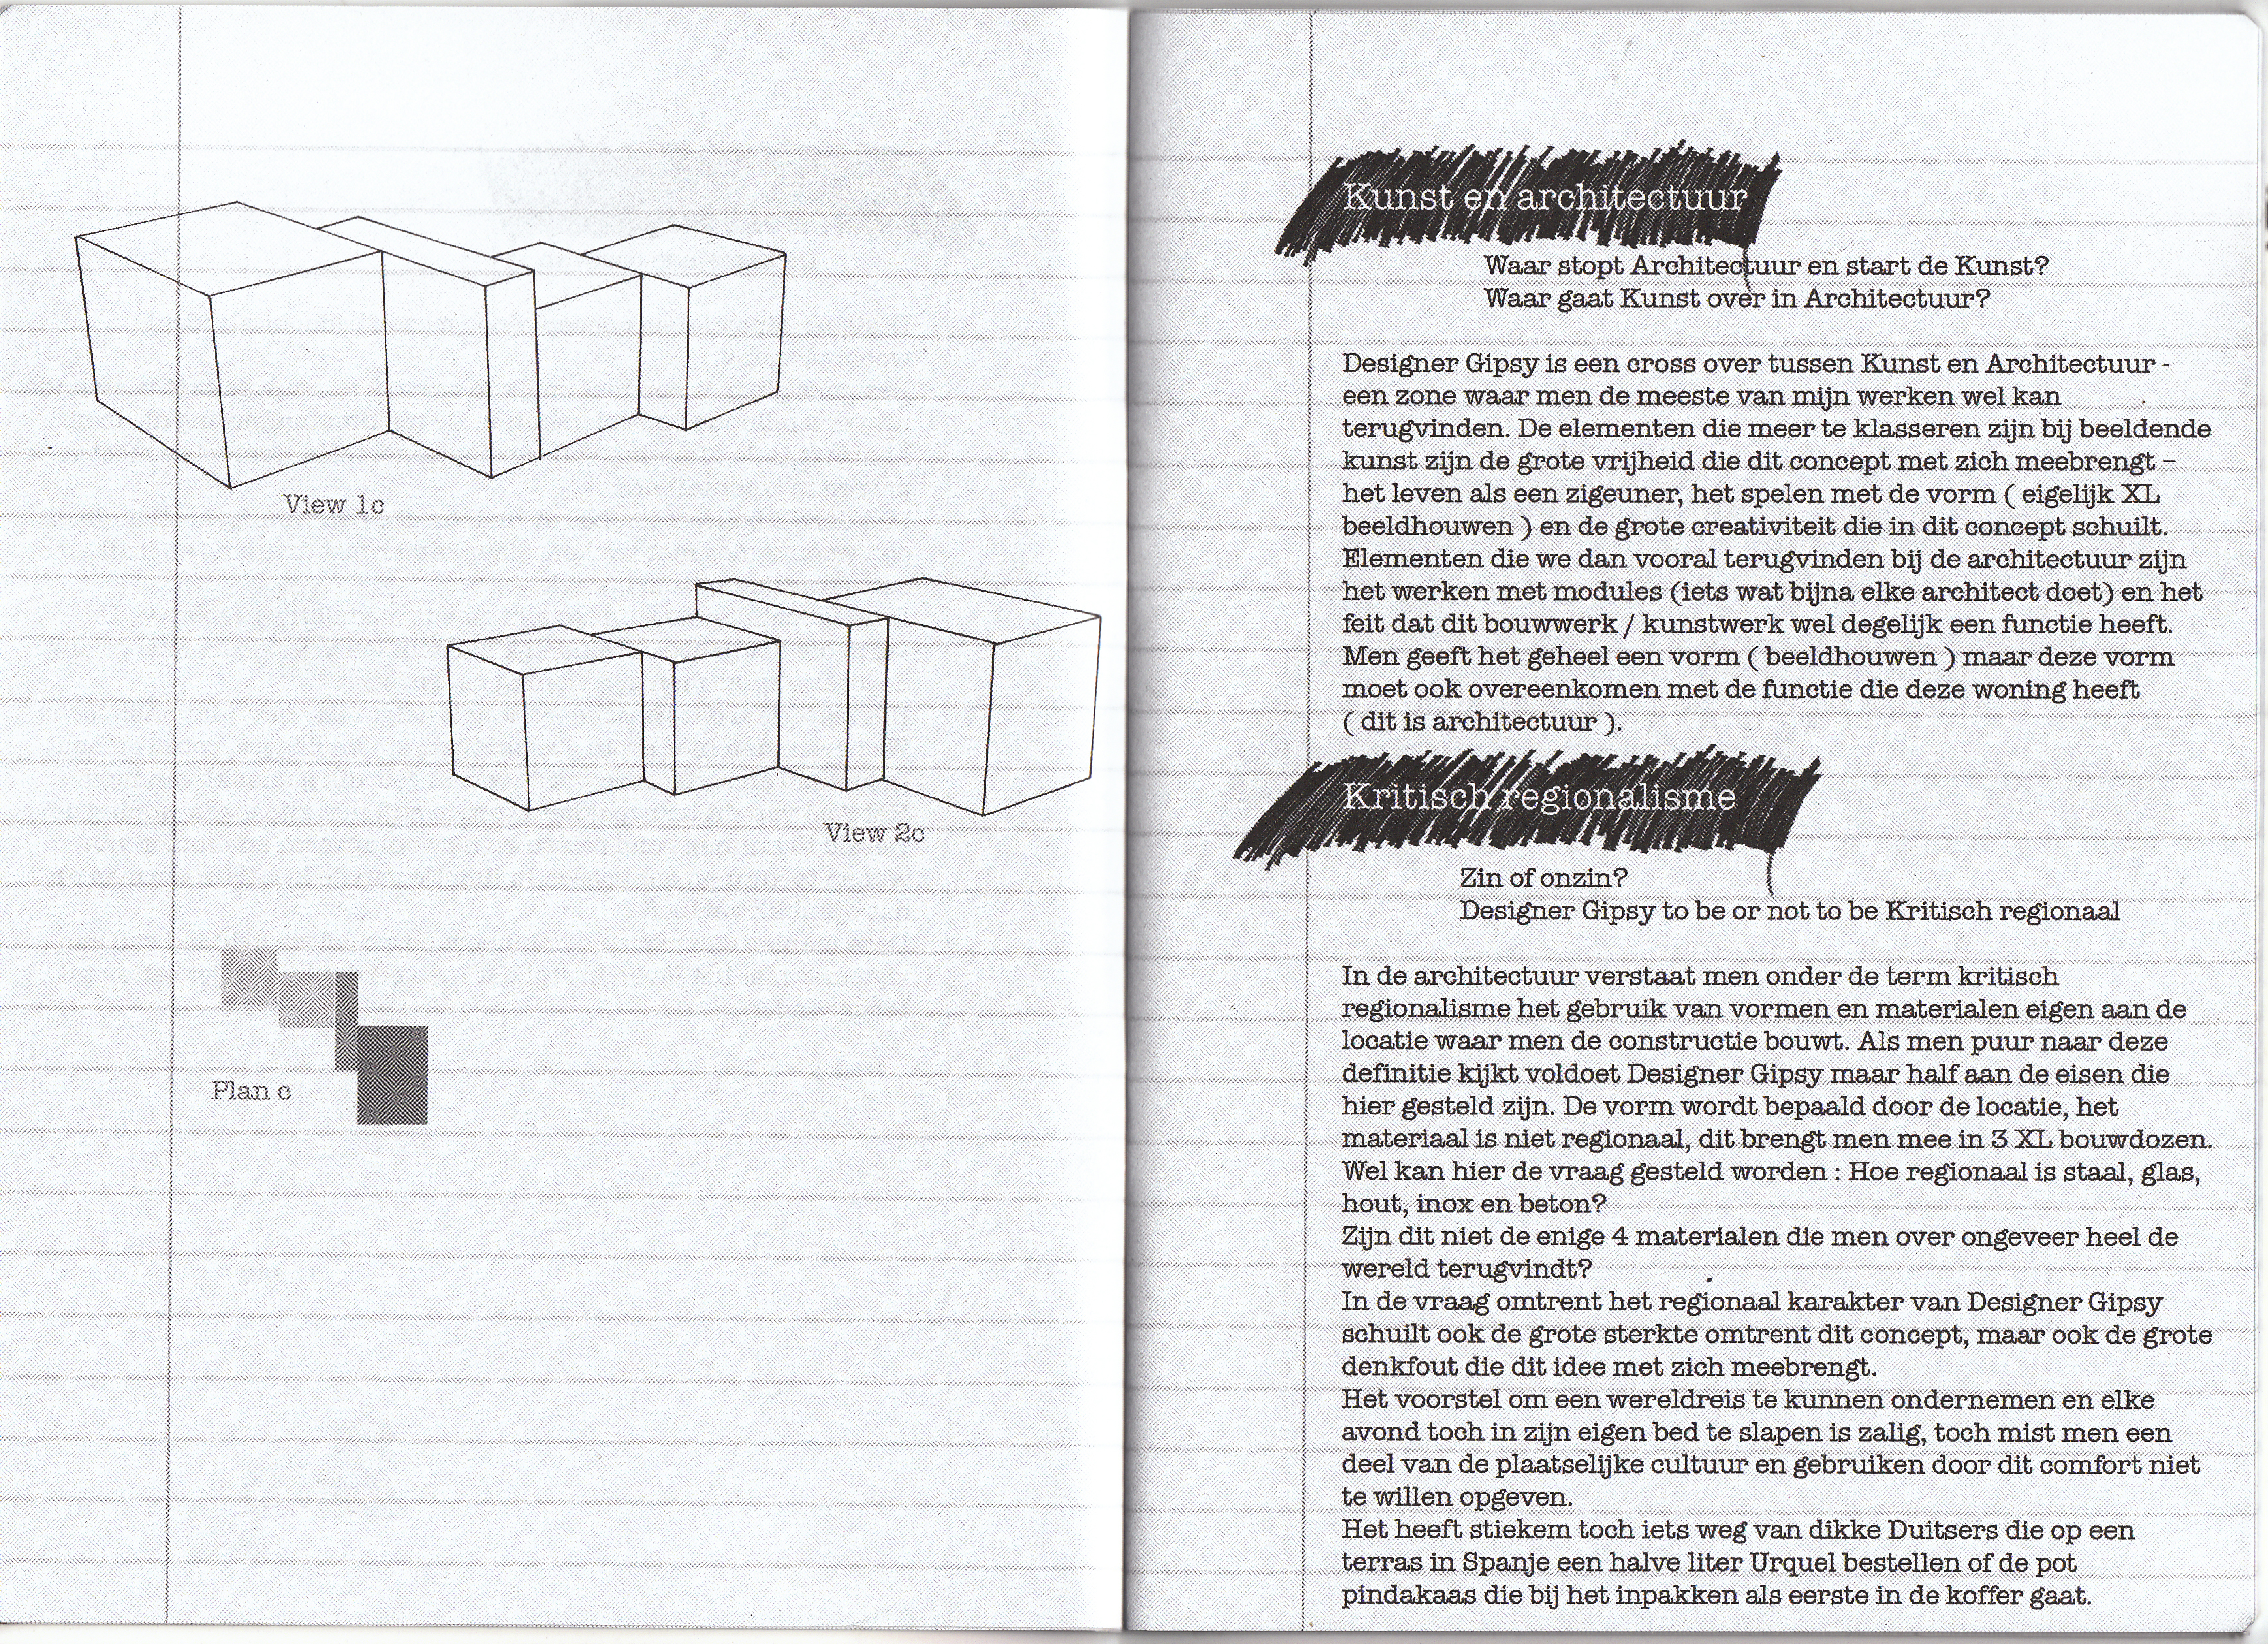 View 1c
View 2c
Plan c
Kunst en architectuur
Waar stopt Architectuur en start de Kunst?
Waar gaat Kunst over in Architectuur?
Designer Gipsy is een cross over tussen Kunst en Architectuur -
een zone waar men de meeste van mijn werken wel kan
terugvinden. De elementen die meer te klasseren zijn bij beeldende
kunst zijn de grote vrijheid die dit concept met zich meebrengt –
het leven als een zigeuner, het spelen met de vorm ( eigelijk XL
beeldhouwen ) en de grote creativiteit die in dit concept schuilt.
Elementen die we dan vooral terugvinden bij de architectuur zijn
het werken met modules (iets wat bijna elke architect doet) en het
feit dat dit bouwwerk / kunstwerk wel degelijk een functie heeft.
Men geeft het geheel een vorm ( beeldhouwen ) maar deze vorm
moet ook overeenkomen met de functie die deze woning heeft
( dit is architectuur ).
Kritisch regionalisme
Zin of onzin?
Designer Gipsy to be or not to be Kritisch regionaal
In de architectuur verstaat men onder de term kritisch
regionalisme het gebruik van vormen en materialen eigen aan de
locatie waar men de constructie bouwt. Als men puur naar deze
definitie kijkt voldoet Designer Gipsy maar half aan de eisen die
hier gesteld zijn. De vorm wordt bepaald door de locatie, het
materiaal is niet regionaal, dit brengt men mee in 3 XL bouwdozen.
Wel kan hier de vraag gesteld worden : Hoe regionaal is staal, glas,
hout, inox en beton?
Zijn dit niet de enige 4 materialen die men over ongeveer heel de
wereld terugvindt?
In de vraag omtrent het regionaal karakter van Designer Gipsy
schuilt ook de grote sterkte omtrent dit concept, maar ook de grote
denkfout die dit idee met zich meebrengt.
Het voorstel om een wereldreis te kunnen ondernemen en elke
avond toch in zijn eigen bed te slapen is zalig, toch mist men een
deel van de plaatselijke cultuur en gebruiken door dit comfort niet
te willen opgeven.
Het heeft stiekem toch iets weg van dikke Duitsers die op een
terras in Spanje een halve liter Urquel bestellen of de pot
pindakaas die bij het inpakken als eerste in de koffer gaat.